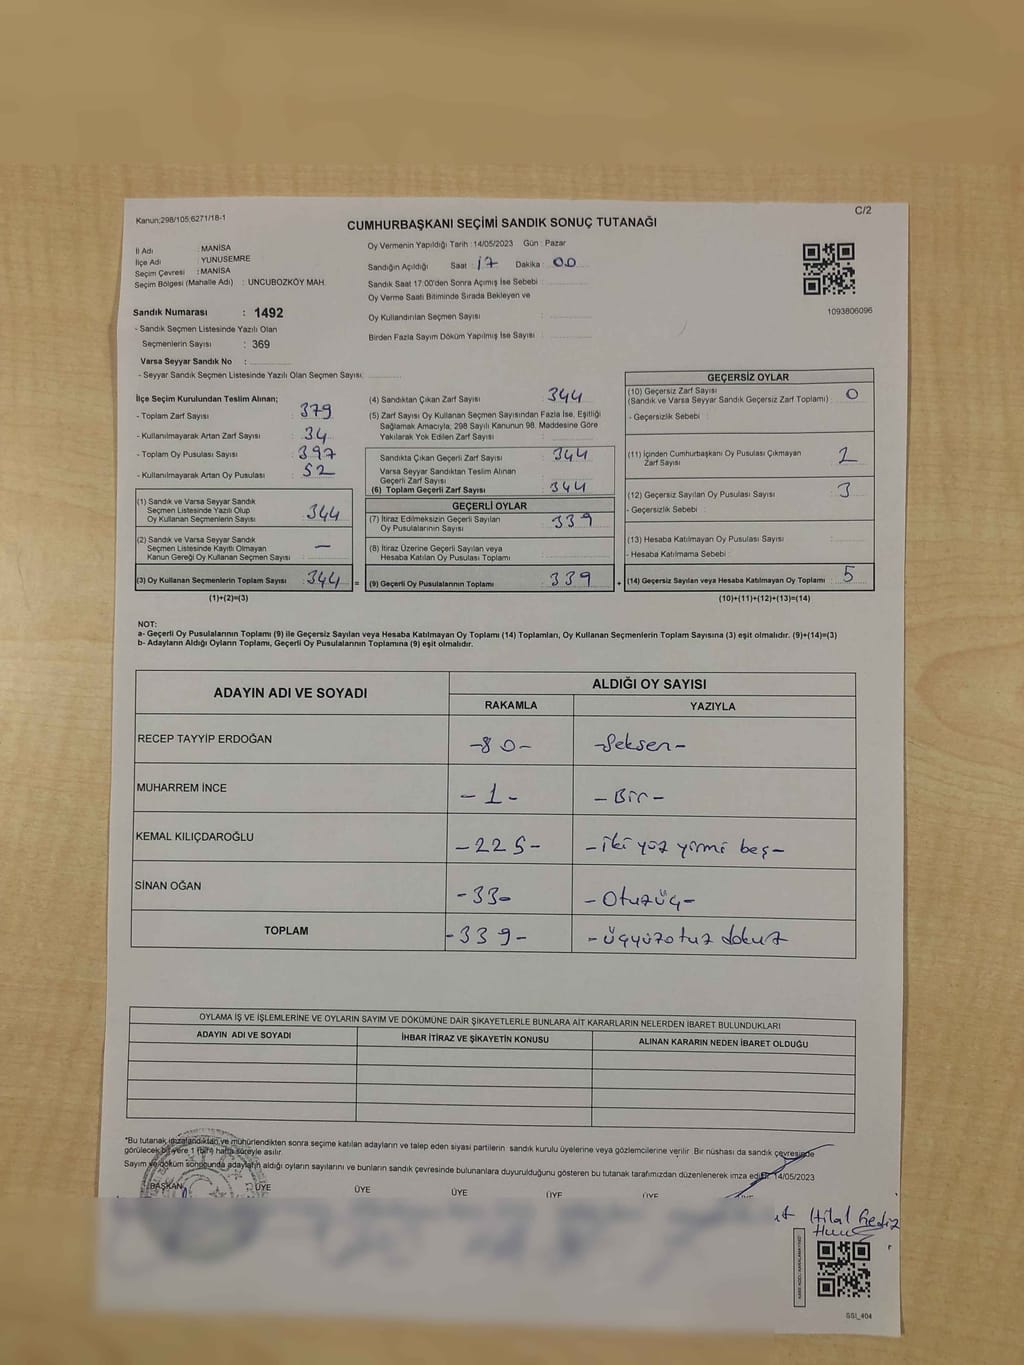 Kanun;298/105;6271/18-1
C/2
CUMHURBAŞKANI SEÇİMİ SANDIK SONUÇ TUTANAĞI
İl Adı : MANİSA
İlçe Adı : YUNUSEMRE
Seçim Çevresi : MANİSA
Seçim Bölgesi (Mahalle Adı) : UNCUBOZKÖY MAH.
Oy Vermenin Yapıldığı Tarih : 14/05/2023 Gün : Pazar
Sandığın Açıldığı Saat : 17 Dakika : 00
Sandık Saat 17.00'den Sonra Açılmış İse Sebebi :
Oy Verme Saati Bitiminde Sırada Bekleyen ve
Oy Kullandırılan Seçmen Sayısı :
Birden Fazla Sayım Döküm Yapılmış İse Sayısı :
1093806096
Sandık Numarası : 1492
- Sandık Seçmen Listesinde Yazılı Olan
Seçmenlerin Sayısı : 369
Varsa Seyyar Sandık No :
- Seyyar Sandık Seçmen Listesinde Yazılı Olan Seçmen Sayısı:
İlçe Seçim Kurulundan Teslim Alınan;
- Toplam Zarf Sayısı : 379
- Kullanılmayarak Artan Zarf Sayısı : 34
- Toplam Oy Pusulası Sayısı : 397
- Kullanılmayarak Artan Oy Pusulası : 52
(1) Sandık ve Varsa Seyyar Sandık
Seçmen Listesinde Yazılı Olup
Oy Kullanan Seçmenlerin Sayısı : 344
(2) Sandık ve Varsa Seyyar Sandık
Seçmen Listesinde Kayıtlı Olmayan
Kanun Gereği Oy Kullanan Seçmen Sayısı : —
(3) Oy Kullanan Seçmenlerin Toplam Sayısı : 344 =
(1)+(2)=(3)
(4) Sandıktan Çıkan Zarf Sayısı : 344
(5) Zarf Sayısı Oy Kullanan Seçmen Sayısından Fazla İse, Eşitliği
Sağlamak Amacıyla; 298 Sayılı Kanunun 98. Maddesine Göre
Yakılarak Yok Edilen Zarf Sayısı :
Sandıkta Çıkan Geçerli Zarf Sayısı : 344
Varsa Seyyar Sandıktan Teslim Alınan
Geçerli Zarf Sayısı :
(6) Toplam Geçerli Zarf Sayısı : 344
GEÇERLİ OYLAR
(7) İtiraz Edilmeksizin Geçerli Sayılan
Oy Pusulalarının Sayısı : 339
(8) İtiraz Üzerine Geçerli Sayılan veya
Hesaba Katılan Oy Pusulası Toplamı :
(9) Geçerli Oy Pusulalarının Toplamı : 339 +
GEÇERSİZ OYLAR
(10) Geçersiz Zarf Sayısı
(Sandık ve Varsa Seyyar Sandık Geçersiz Zarf Toplamı) : 0
- Geçersizlik Sebebi :
(11) İçinden Cumhurbaşkanı Oy Pusulası Çıkmayan
Zarf Sayısı : 2
(12) Geçersiz Sayılan Oy Pusulası Sayısı : 3
- Geçersizlik Sebebi :
(13) Hesaba Katılmayan Oy Pusulası Sayısı :
- Hesaba Katılmama Sebebi :
(14) Geçersiz Sayılan veya Hesaba Katılmayan Oy Toplamı : 5
(10)+(11)+(12)+(13)=(14)
NOT:
a- Geçerli Oy Pusulalarının Toplamı (9) ile Geçersiz Sayılan veya Hesaba Katılmayan Oy Toplamı (14) Toplamları, Oy Kullanan Seçmenlerin Toplam Sayısına (3) eşit olmalıdır. (9)+(14)=(3)
b- Adayların Aldığı Oyların Toplamı, Geçerli Oy Pusulalarının Toplamına (9) eşit olmalıdır.
ADAYIN ADI VE SOYADI
ALDIĞI OY SAYISI
RAKAMLA YAZIYLA
RECEP TAYYİP ERDOĞAN -80- -Seksen-
MUHARREM İNCE -1- -Bir-
KEMAL KILIÇDAROĞLU -225- -iki yüz yirmi beş-
SİNAN OĞAN -33- -Otuzüç-
TOPLAM -339- -üçyüzotuz dokuz
OYLAMA İŞ VE İŞLEMLERİNE VE OYLARIN SAYIM VE DÖKÜMÜNE DAİR ŞİKAYETLERLE BUNLARA AİT KARARLARIN NELERDEN İBARET BULUNDUKLARI
ADAYIN ADI VE SOYADI İHBAR İTİRAZ VE ŞİKAYETİN KONUSU ALINAN KARARIN NEDEN İBARET OLDUĞU
*Bu tutanak imzalandıktan ve mühürlendikten sonra seçime katılan adayların ve talep eden siyasi partilerin sandık kurulu üyelerine veya gözlemcilerine verilir. Bir nüshası da sandık çevresinde
görülecek bir yere 1 (bir) hafta süreyle asılır.
Sayım ve döküm sonucunda adayların aldığı oyların sayılarını ve bunların sandık çevresinde bulunanlara duyurulduğunu gösteren bu tutanak tarafımızdan düzenlenerek imza edildi. 14/05/2023
BAŞKAN ÜYE ÜYE ÜYE ÜYE ÜYE ÜYE
Hilal Gediz
SSI_404